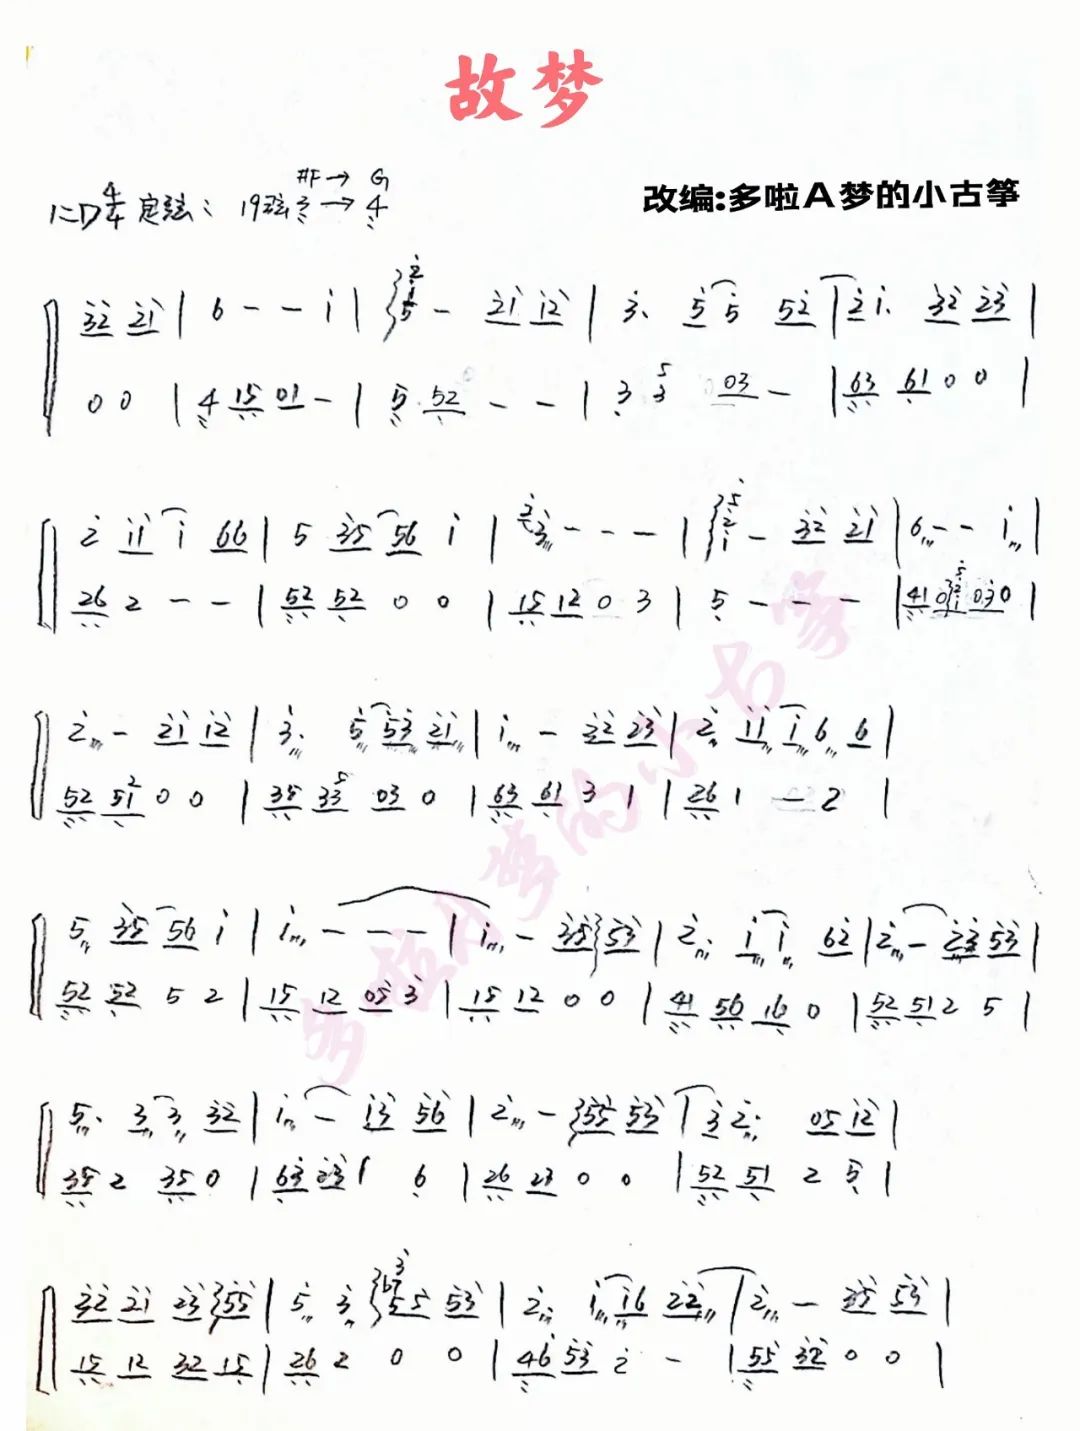 故梦
#F→ G
1=D 4/4 定弦: 19弦 3→4
改编:多啦A梦的小古筝
32 21 | 6 - - i | 5 i 2 - 21 12 | 3. 5 5 52 | 2 i. 32 23 |
0 0 | 4 15 01 - | 5 52 - - | 3 3 5 03 - | 63 61 0 0 |
2 11 i 66 | 5 35 56 i | 2 3 - - - | i 2 5 - 32 21 | 6 - - i |
26 2 - - | 52 52 0 0 | 15 12 0 3 | 5 - - - | 41 0 1 2 5 03 0 |
2 - 21 12 | 3. 5 53 21 | i - 22 23 | 2. 11 i 6 6 |
52 51 2 0 0 | 35 33 5 03 0 | 63 61 3 1 | 26 1 - 2 |
5 35 56 i | i - - - | i - 35 53 | 2. i i 62 | 2 - 23 53 |
52 52 5 2 | 15 12 05 3 | 15 12 0 0 | 41 56 16 0 | 52 51 2 5 |
5. 3 3 32 | i - 13 56 | 2 - 55 53 | 3 2. 05 12 |
35 2 35 0 | 63 23 1 6 | 26 23 0 0 | 52 51 2 5 |
32 21 23 55 | 5 3 55 b7 3 53 | 2. i 16 22 | 2 - 35 53 |
15 12 32 15 | 26 2 0 0 | 46 53 2 - | 55 32 0 0 |
多啦A梦的小古筝